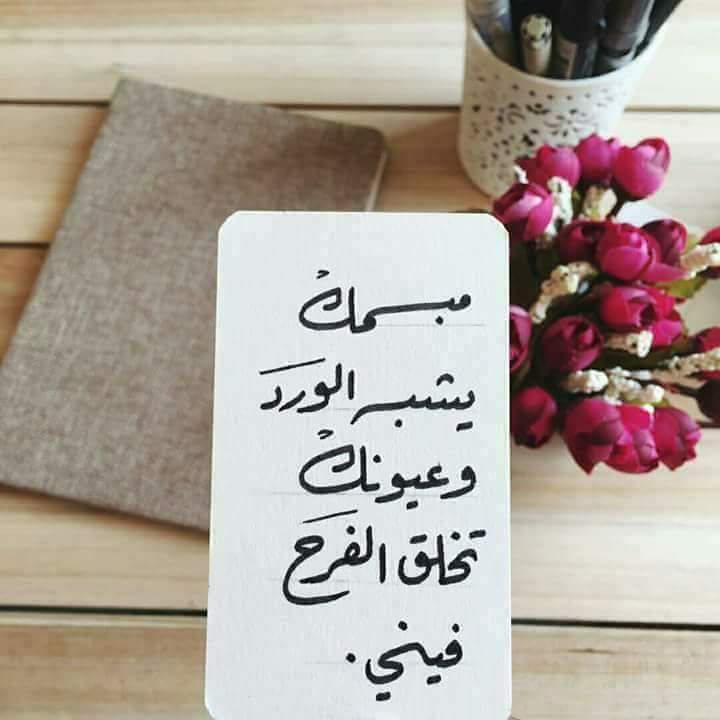 مبسمك
يشبه الورد
وعيونك
تخلق الفرح
فيني.